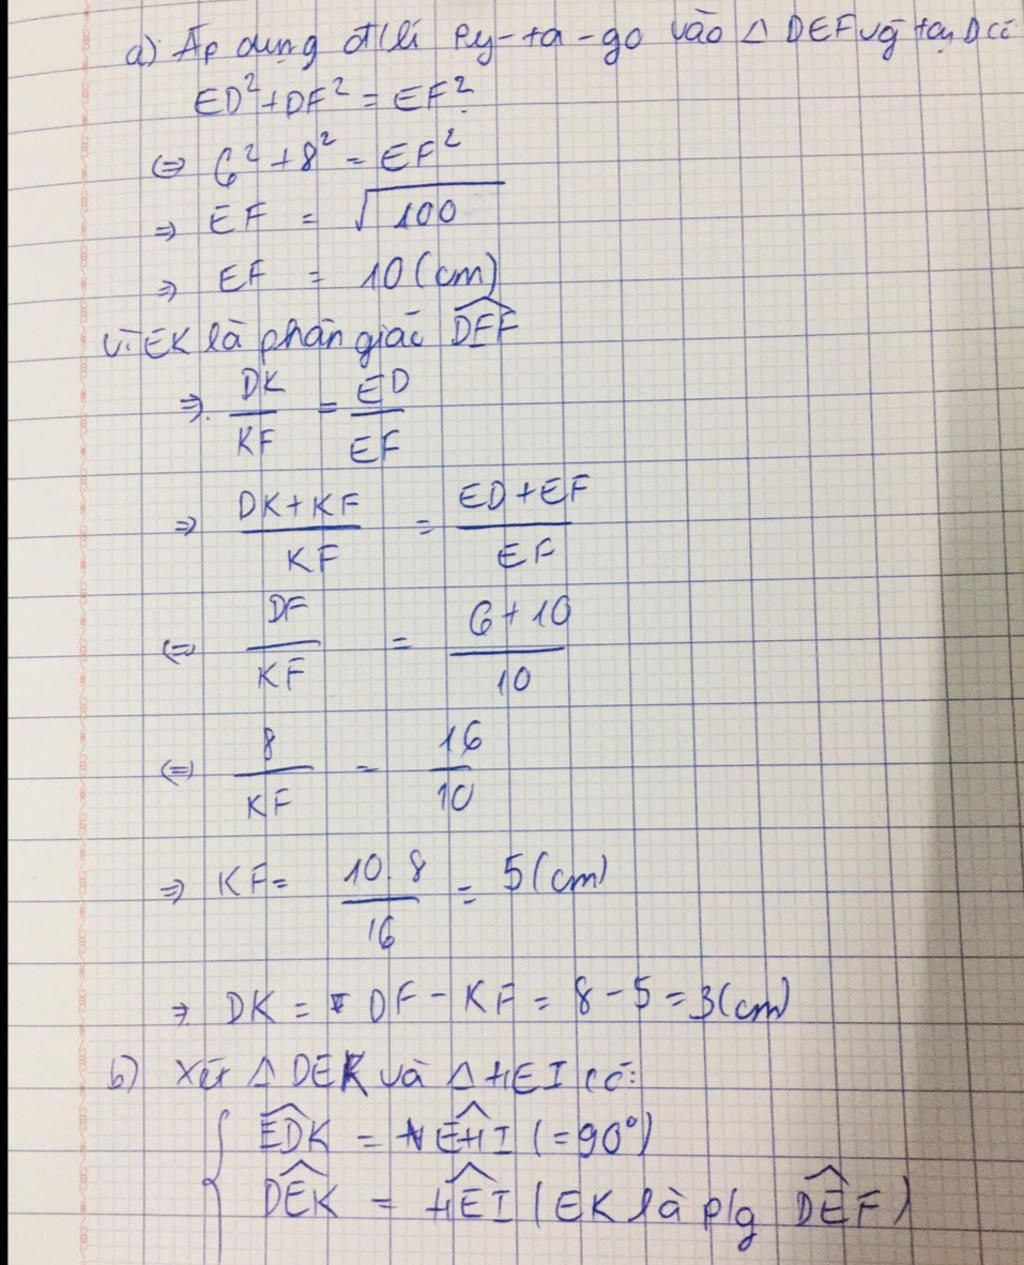 a) Áp dụng đ/lí Py-ta-go vào △ DEF vg tại D có
ED² + DF² = EF²
⇔ 6² + 8² = EF²
⇒ EF = √100
⇒ EF = 10 (cm)
Vì EK là phân giác \widehat{DEF}
⇒ DK/KF = ED/EF
⇒ (DK + KF)/KF = (ED + EF)/EF
⇔ DF/KF = (6 + 10)/10
⇔ 8/KF = 16/10
⇒ KF = (10.8)/16 = 5 (cm)
⇒ DK = DF - KF = 8 - 5 = 3 (cm)
b) Xét △ DEK và △ HEI có:
\widehat{EDK} = \widehat{EHI} (= 90°)
\widehat{DEK} = \widehat{HEI} (EK là p/g \widehat{DEF})